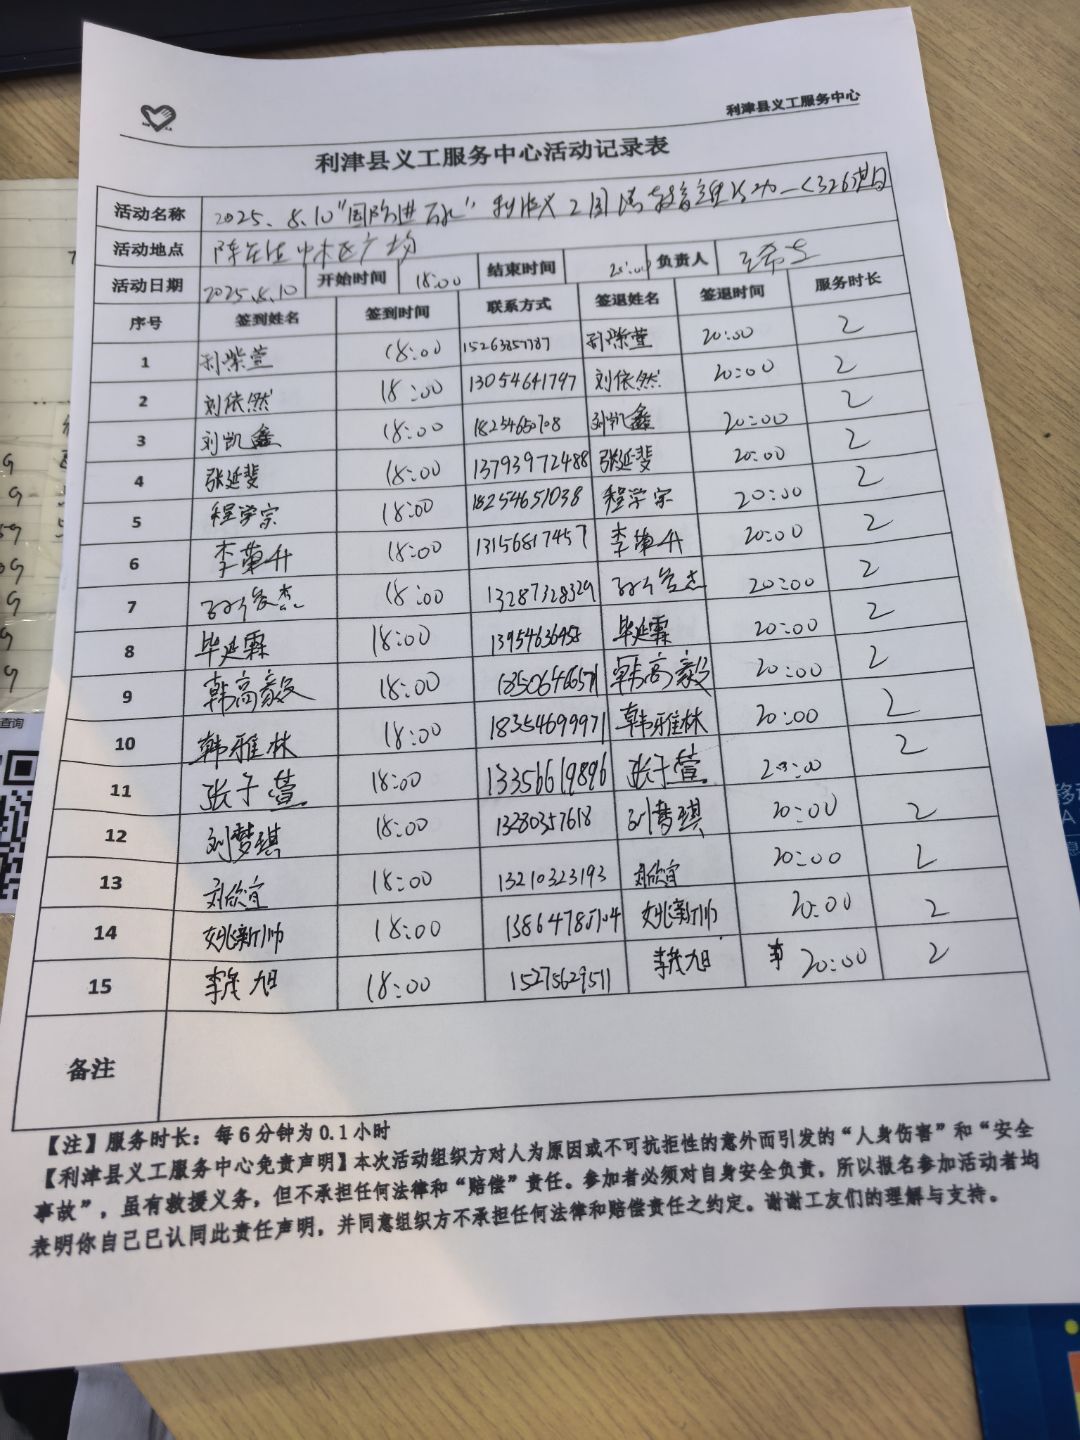 利津县义工服务中心
利津县义工服务中心活动记录表
活动名称 2025.8.10"国际进
活动地点 广场
活动日期 2025.8.10 开始时间 18:00 结束时间 20:00 负责人
序号 签到姓名 签到时间 联系方式 签退姓名 签退时间 服务时长
1 刘紫萱 18:00 刘紫萱 20:00 2
2 刘依然 18:00 13054641797 刘依然 20:00 2
3 刘凯鑫 18:00 刘凯鑫 20:00 2
4 张延斐 18:00 13793972488 张延斐 20:00 2
5 程学宗 18:00 18254651038 程学宗 20:00 2
6 李荣升 18:00 13156817457 李荣升 20:00 2
7 18:00 13287328329 20:00 2
8 毕延霖 18:00 毕延霖 20:00 2
9 韩高毅 18:00 韩高毅 20:00 2
10 韩雅林 18:00 18354699971 韩雅林 20:00 2
11 张子萱 18:00 13356619896 张子萱 20:00 2
12 刘梦琪 18:00 13280357618 刘梦琪 20:00 2
13 刘欣宜 18:00 13210323193 刘欣宜 20:00 2
14 姚新帅 18:00 姚新帅 20:00 2
15 李茂旭 18:00 15275629511 李茂旭 20:00 2
备注
【注】服务时长：每6分钟为0.1小时
【利津县义工服务中心免责声明】本次活动组织方对人为原因或不可抗拒性的意外而引发的“人身伤害”和“安全
事故”，虽有救援义务，但不承担任何法律和“赔偿”责任。参加者必须对自身安全负责，所以报名参加活动者均
表明你自己已认同此责任声明，并同意组织方不承担任何法律和赔偿责任之约定。谢谢工友们的理解与支持。
查询